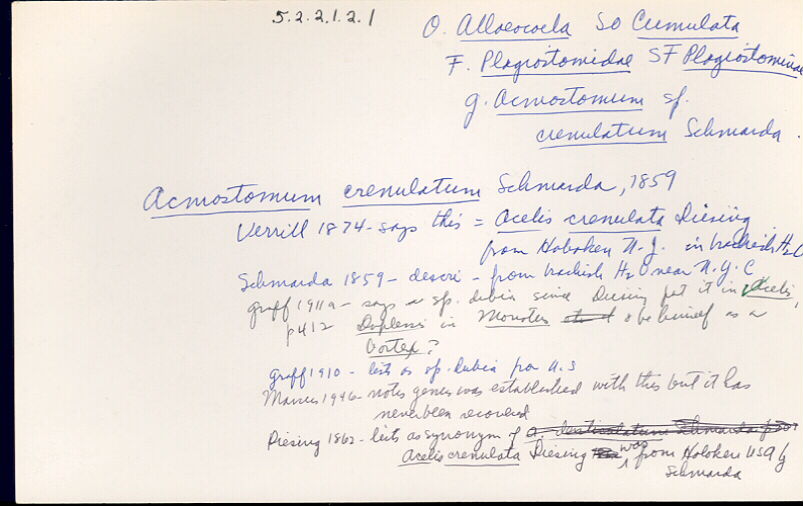 5.2.2.1.2.1
O. Alloeocoela SO Cumulata
F. Plagiostomidae SF Plagiostominae
g. Acmostomum sp.
crenulatum Schmarda.
Acmostomum crenulatum Schmarda, 1859
Verrill 1874 - says this = Acelis crenulata Diesing
from Hoboken N.J. in brackish H2O
Schmarda 1859 - descri - from brackish H2O near N.Y.C
Graff 1911a - says a sp. dubia since Diesing put it in Acelis,
p412 Duplessis in Monotus & he himself as a
Vortex?
Graff 1910 - lists as sp. dubia for U.S
Marcus 1946 - notes genus was established with this but it has
never been recovered
Diesing 1862 - lists as synonym of
Acelis crenulata Diesing was from Hoboken USA by
Schmarda